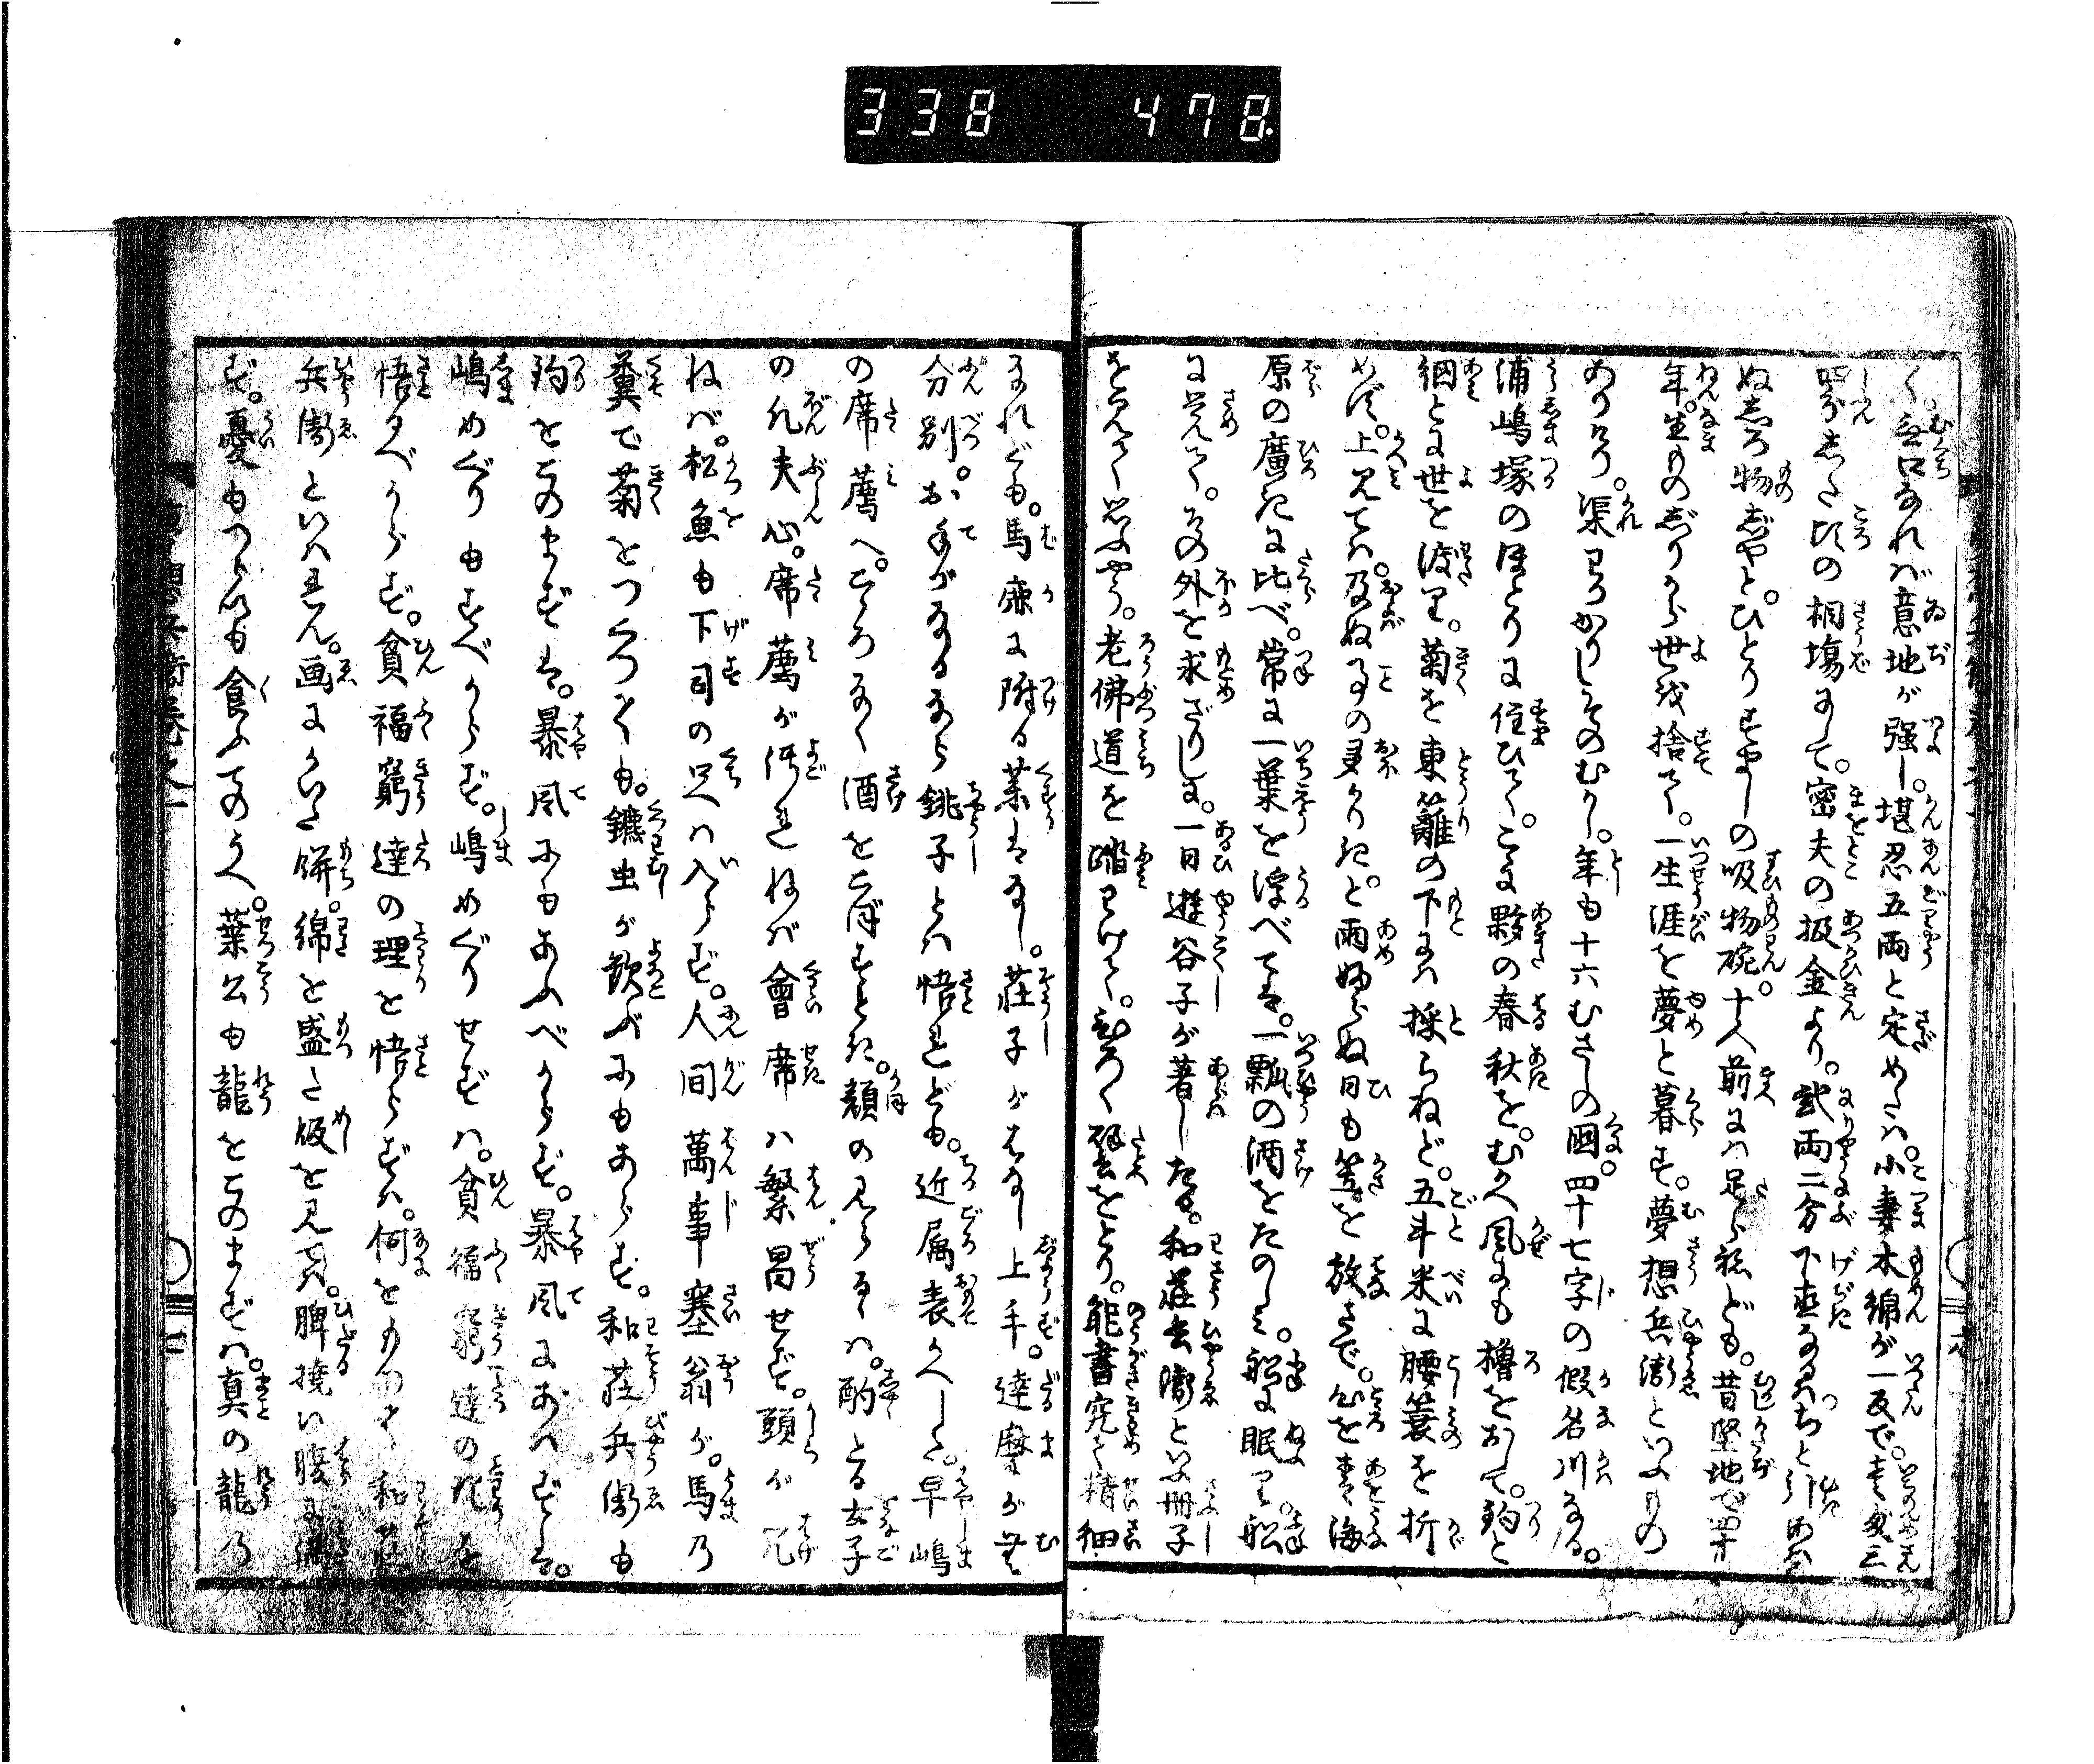 338 478
く。無口なれば意地が強し。堪忍五両と定めしハ。小妻木綿が一反で。壱〆弐三
四分せし頃の相場にして。密夫の扱金より。弐両二分下直なるハちと引あは
ぬしろ物じやと。ひとりすましの吸物碗。十人前にハ足らねども。昔堅地で四十
年。生ものじりから世を捨て。一生涯を夢と暮す。夢想兵衛といふもの
ありけり。渠わかかりしそのむかし。年も十六むさしの国。四十七字の假名川なる。
浦嶋塚のほとりに住ひて。こゝに夥の春秋を。むかへ風にも櫓をおして。釣と
網とに世を渡り。菊を東籬の下にハ採らねど。五斗米に腰簑を折
めず。上見てハ。及ぬ事の多かりきと。雨ふらぬ日も笠を放さで。心を青海
原の廣きに比べ。常に一葉を浮べては。一瓢の酒をたのしミ。船に眠り。船
に覚て。その外を求ざりしに。一日遊谷子が著したる。和荘兵衛といふ冊子
を見て思ふやう。老佛道を踏わけて。ひろく譬をとり。能書究て精細
なれども。馬鹿に附る薬はなし。荘子がはなし上手。達磨が無
分別。お手がなるなら銚子とハ悟れども。近属表がへしせし。早嶋
の席薦へ。ひろなく酒をこぼすときハ。顔の見らるゝハ。酌とる女子
の凡夫心。席薦が汚れねば會席ハ繁昌せず。頭が兀
ねば。松魚も下司の口へハ入らず。人間萬事塞翁が。馬の
糞で菊をつくつても。鑣虫が飲ぶにもあらず。和荘兵衛も
釣をこのまずは。暴風にもあふべからず。暴風にあハずは。
嶋めぐりもすべからず。嶋めぐりせずハ。貧福窮達の理を
悟るべからず。貧福窮達の理を悟らずハ。何をもつて和荘
兵衛といハれん。画にかいた餅。綿を盛た飯を見てハ。脾撓い腹に満
ず。憂もつらいも食ふてのうへ。葉公も龍をこのまずハ。真の龍乃